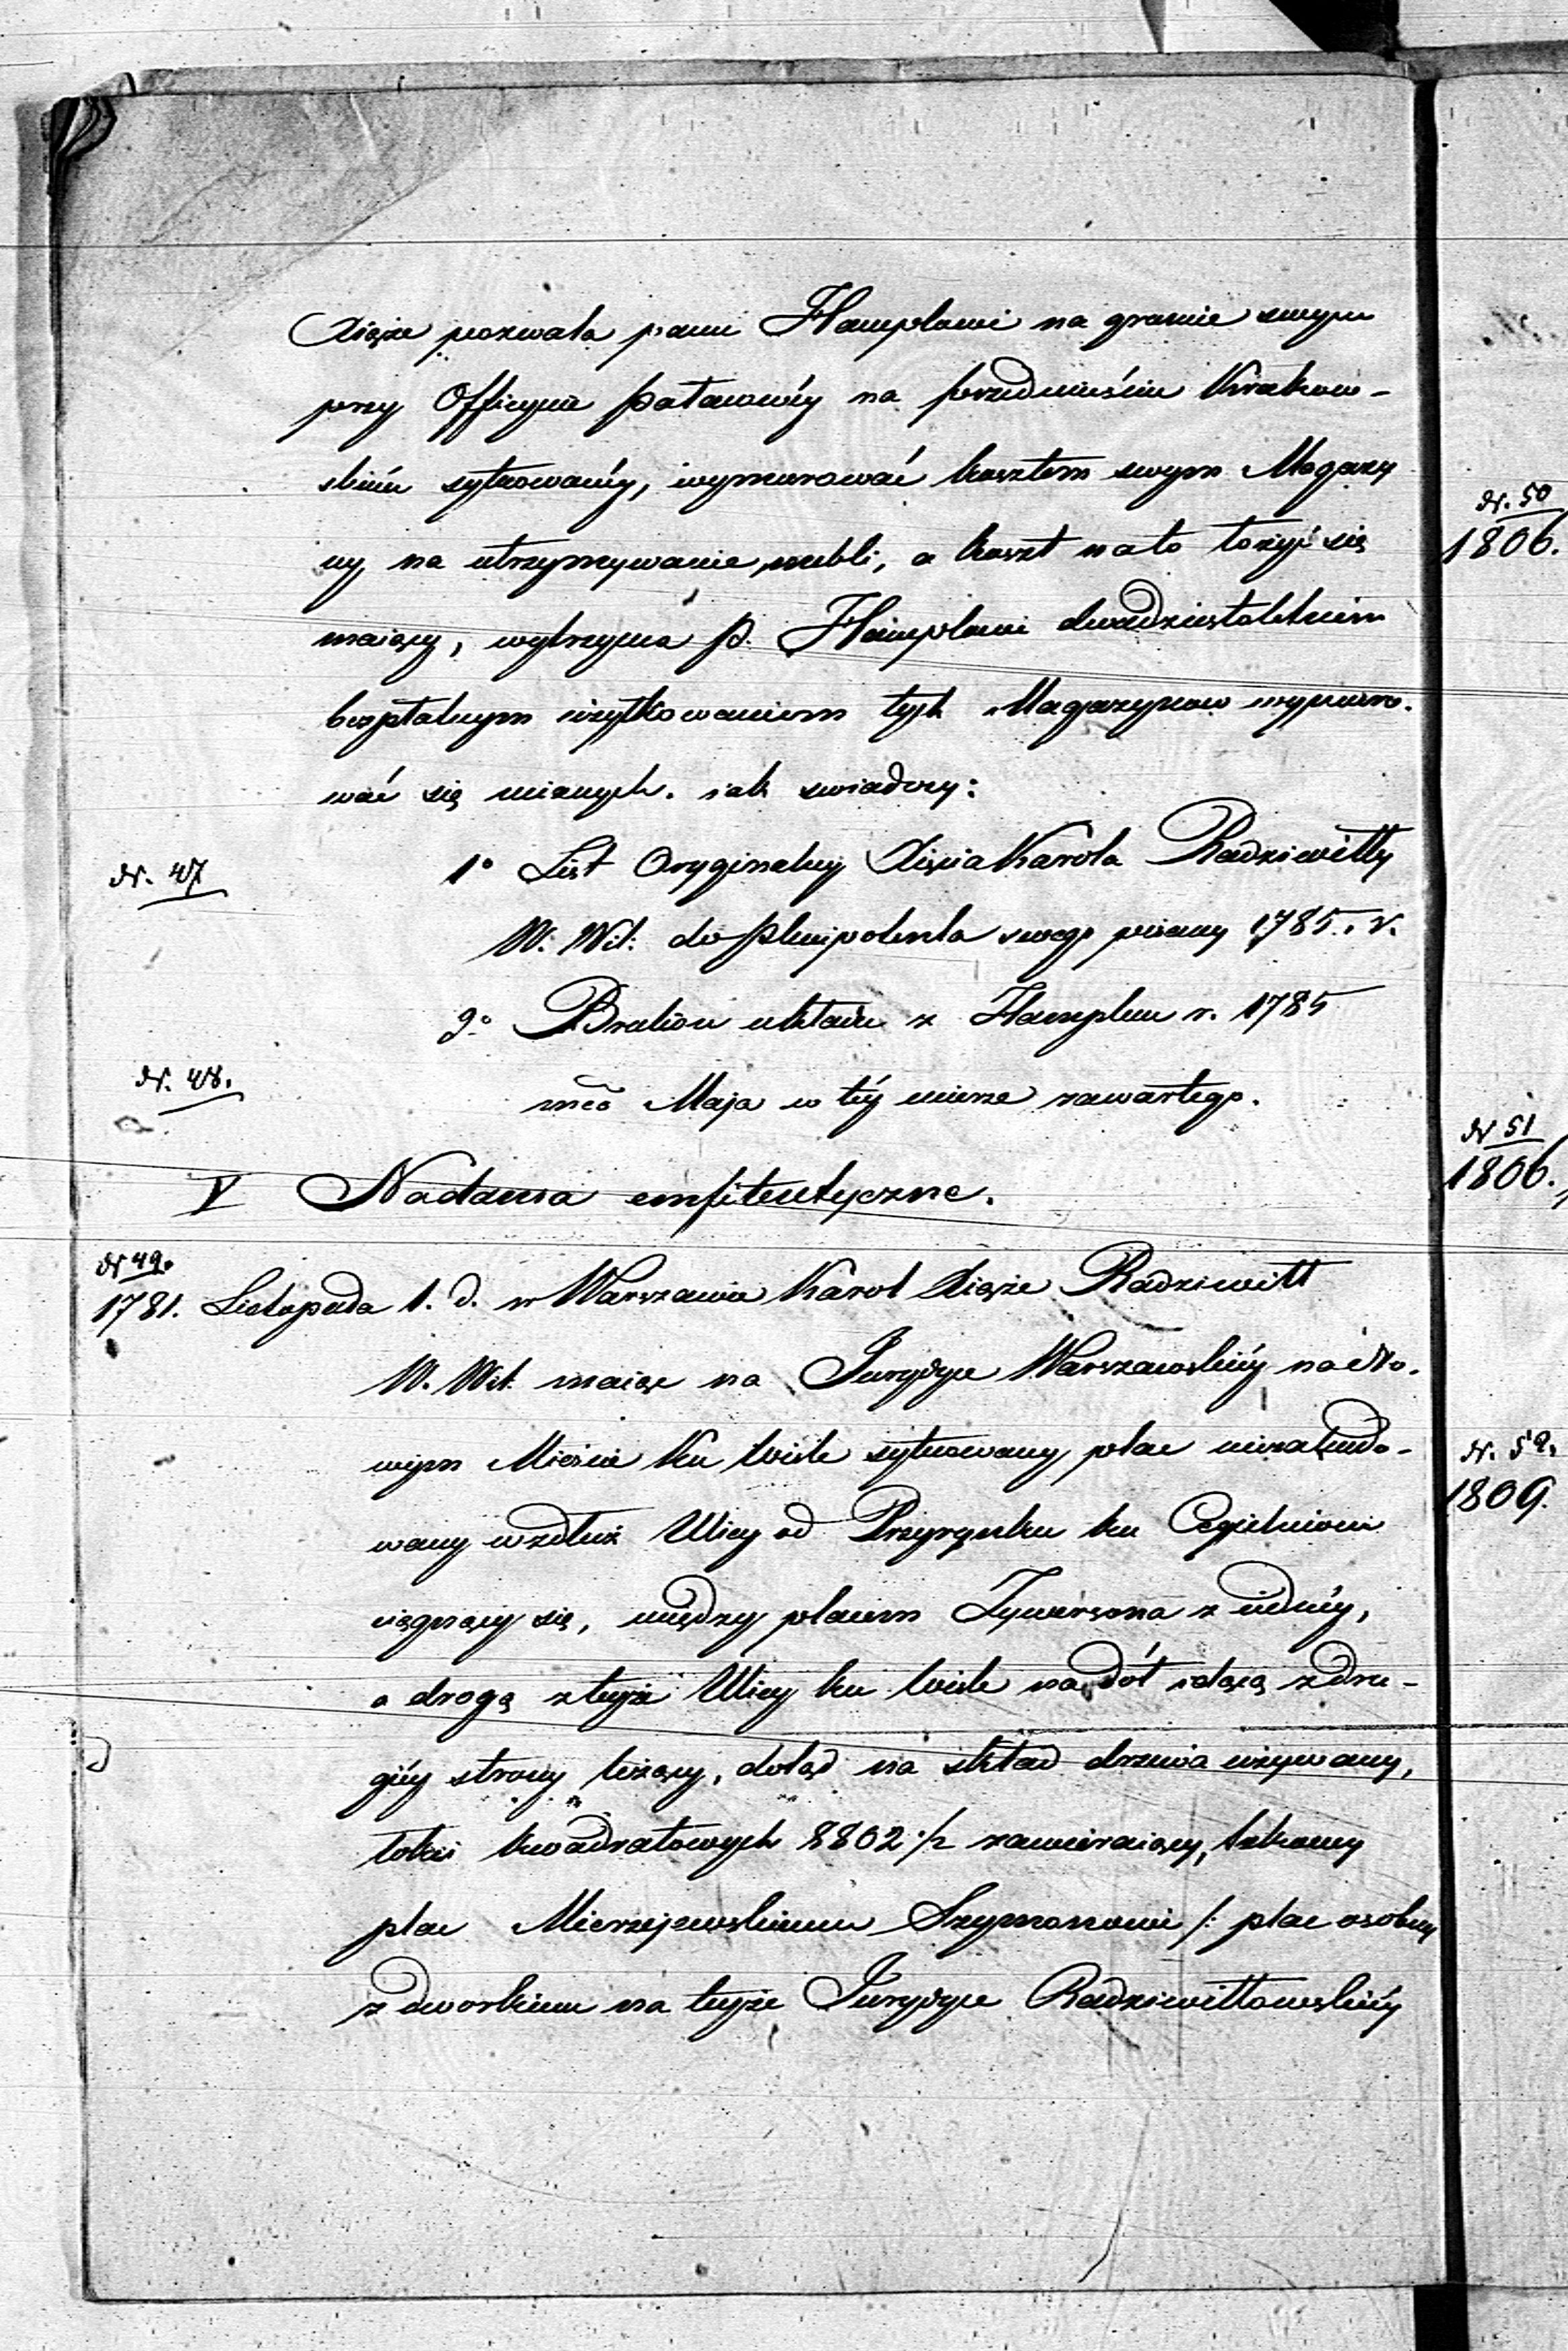 Xiąże pozwala panu Hamplowi na gruncie swym
przy Officynie pałacowéy na przedmieściu Krakow-
skiém sytuowanéy, wymurować kosztem swym Magazy
ny na utrzymywanie mebli, a koszt na to łożyć się
maiący, wytrzyma P. Hamplowi dwudziestoletniém
bezpłatnym użytkowaniem tych Magazynow wymuro.
wać się mianych. iak swiadczy:
Nr. 47
1º List Oryginalny Xięcia Karola Radziwiłły
W. Wil: do Plenipotenta swego pisany 1785. r.
2º Bralion układu z Hamplem r. 1785
Nr. 48.
mca Maja w téy mierze zawartego.
V Nadania emfiteutyczne.
Nr 49.
1781. Listopada 1. d. w Warszawie Karol Xiąże Radziwiłł
W. Wil. maiąc na Jurydyce Warszawskiéy na No.
wym Mieście ku Wiśle sytuowany plac niezabudo-
wany wzdłuż Ulicy od Przyrynku ku Cegielniom
ciągnący się, między placem z iednéy,
a drogą z teyże Ulicy ku Wiśle na dół idącą z dru-
giéy strony leżący, dotąd na skład drzewa używany,
łokci kwadratowych 8802 1/2 zawieraiący, takowy
plac Mierzejewskiemu Szymonowi /: plac osobny
z dworkiem na teyże Jurydyce Radziwiłłowskiéy
Nr. 50
1806.
Nr 51
1806.
Nr. 52.
1809.